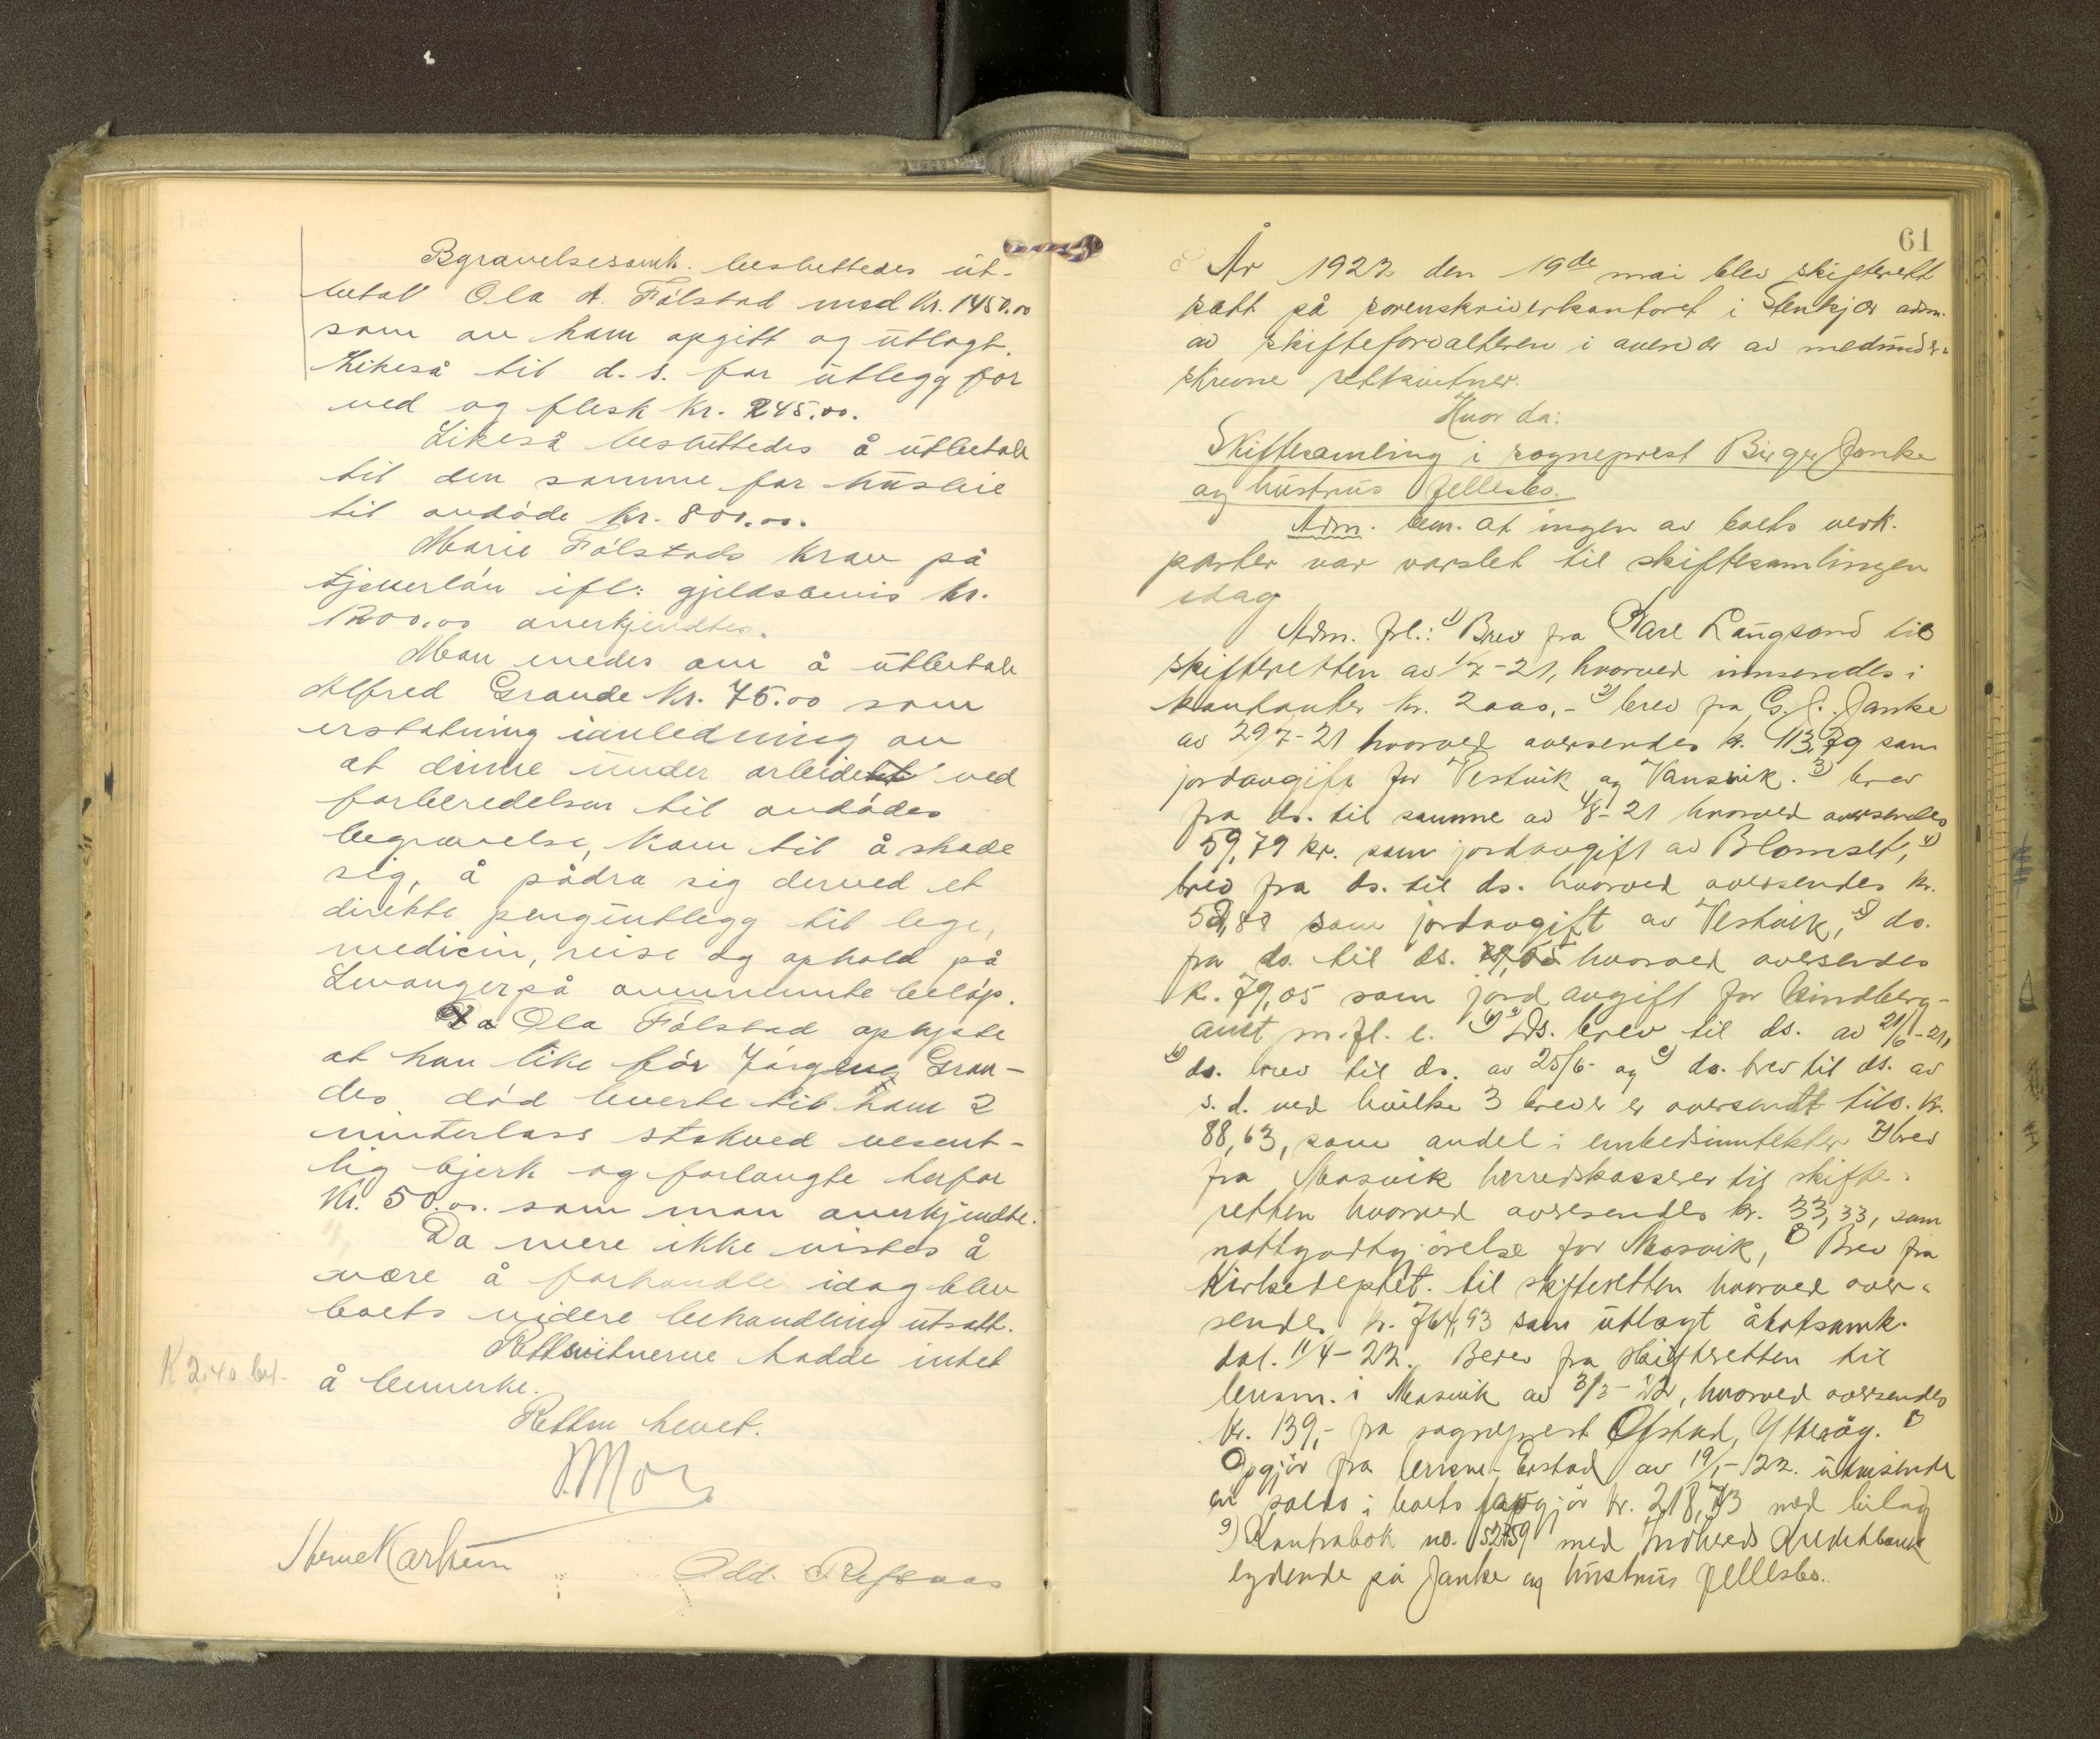 Bgravelsesomk. besluttedes ut-
betalt Ola A. Fólstad med kr. 1450.00
som av ham opgitt og utlagt.
Likeså til d. s. for utlegg for
ved og flesk kr. 245.00.
Likeså besluttedes å utbetale
til den samme for husleie
til avdöde kr. 800.00.
Marie Fólstads krav på
tjenerlón ifl: gjeldsbevis kr.
1200.00 anerkjendtes.
Man enedes om å utbetale
Alfred Grande kr. 75.00 som
erstatning ianledning av
at denne under arbeidet ved
forberedelsen til avdödes
begravelse, kom til å skade
sig, å pådra sig derved et
direkte pengeutlegg til lege,
medicin, reise og ophold på
Levanger på ovennevnte belöp.
Da Ola Fólstad oplyste
at han like för Jörgen Gran-
des död leverte til ham 2
vinterlass stokved vesent-
lig bjerk og forlangte herfor
kr. 50.00. som man anerkjendte.
Da mere ikke vistes å
være å forhandle idag blev
boets videre behandling utsatt.
Rettsvitnerne hadde intet
K 2.40 bet-
å bemerke.
Retten hevet.
Odd. Refsaas
61
År 1922 den 19de mai blev skifterett
satt på sorenskriverkontoret i Stenkjær adm.
av skifteforvalteren i avervær av medunder-
skrevne rettsvitner.
Hvor da:
Skiftesamling i sogneprest Birger Janke
og hustrus fellesbo.
Adm. bem. at ingen av boets vedk.
parter var varslet til skiftesamlingen
idag
Adm. frl.: 1) Brev fra Karl Langsand til
skifteretten av 1/7-21, hvorved innsendtes i
kontanter kr. 2000,- 2) brev fra G. J. Janke
av 29/7-21 hvorved oversendes kr. 113,79 som
jordavgift for Vestvik og Vansvik. 3) brev
fra ds. til samme av 4/8-21 hvorved oversendes
59,79 kr. som jordavgift av Blomset, 4)
brev fra ds. til ds. hvorved oversendes kr.
som jordavgift av Vestvik, 5) do.
fra ds. til ds. hvorved oversendes
k. 79,05 som jordavgift for Kindberg-
aunt m. fl. e. 6) Ds. brev til ds. av 21/6-21,
ds. brev til ds. av 25/6- og do. brev til ds. av
s. d. ved hvilke 3 brever er oversendt tils. kr.
88,63, som andel i embedsinntekter 7) brev
fra Mosvik herredskasserer til skifte-
retten hvorved oversendes kr. 33,33, som
nattgodtgjörelse for Mosvik, 8) Brev fra
Kirkedeptet. til skifteretten hvorved over-
sendes kr. 764,93 som utlagt åbotsomk.
dat. 11/4-22. Brev fra skifteretten til
lensm. i Mosvik av 3/3-22, hvorved oversendes
kr. 139,- fra sogneprest Ofstad, Ytteröy.
Opgjör fra lensm. av 19/-22. utvisende
en saldo i boets opgjör kr. 218,73 med bilag
9) Kontrabok no. 5259 med Indherreds Kreditbank
lydende på Janke og hustrus fellesbo.